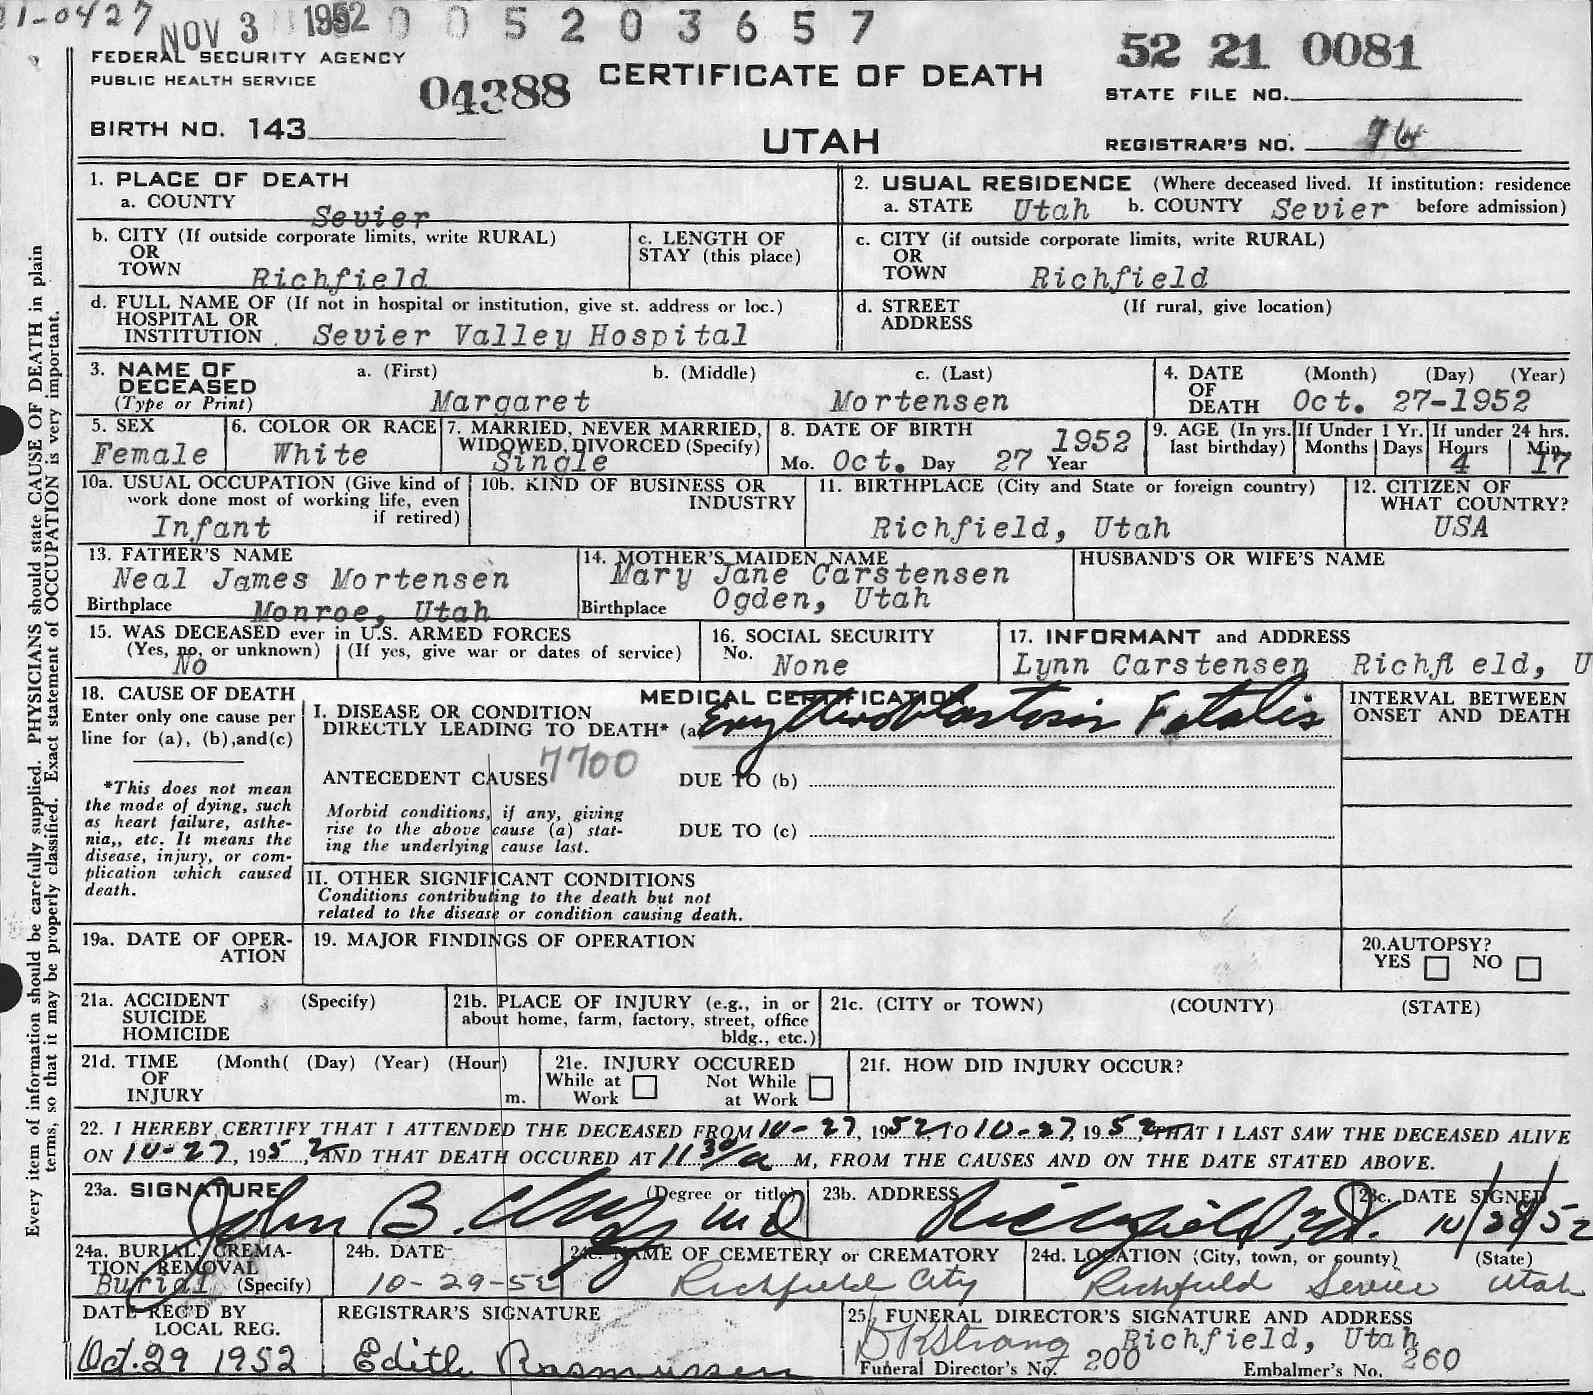 21-0427 NOV 3 1952 0 0 5 2 0 3 6 5 7
FEDERAL SECURITY AGENCY
PUBLIC HEALTH SERVICE
04388
CERTIFICATE OF DEATH
UTAH
52 21 0081
STATE FILE NO.
BIRTH NO. 143
REGISTRAR'S NO. 76
Every item of information should be carefully supplied. PHYSICIANS should state CAUSE OF DEATH in plain
terms, so that it may be properly classified. Exact statement of OCCUPATION is very important.
1. PLACE OF DEATH
a. COUNTY Sevier
2. USUAL RESIDENCE (Where deceased lived. If institution: residence
a. STATE Utah b. COUNTY Sevier before admission)
b. CITY (If outside corporate limits, write RURAL)
OR
TOWN Richfield
c. LENGTH OF
STAY (this place)
c. CITY (if outside corporate limits, write RURAL)
OR
TOWN Richfield
d. FULL NAME OF (If not in hospital or institution, give st. address or loc.)
HOSPITAL OR
INSTITUTION Sevier Valley Hospital
d. STREET (If rural, give location)
ADDRESS
3. NAME OF a. (First) b. (Middle) c. (Last)
DECEASED
(Type or Print) Margaret Mortensen
4. DATE (Month) (Day) (Year)
OF
DEATH Oct. 27-1952
5. SEX
Female
6. COLOR OR RACE
White
7. MARRIED, NEVER MARRIED,
WIDOWED, DIVORCED (Specify)
Single
8. DATE OF BIRTH 1952
Mo. Oct. Day 27 Year
9. AGE (In yrs. If Under 1 Yr. If under 24 hrs.
last birthday) Months Days Hours Min.
4 17
10a. USUAL OCCUPATION (Give kind of
work done most of working life, even
if retired)
Infant
10b. KIND OF BUSINESS OR
INDUSTRY
11. BIRTHPLACE (City and State or foreign country)
Richfield, Utah
12. CITIZEN OF
WHAT COUNTRY?
USA
13. FATHER'S NAME
Neal James Mortensen
Birthplace Monroe, Utah
14. MOTHER'S MAIDEN NAME
Mary Jane Carstensen
Birthplace Ogden, Utah
HUSBAND'S OR WIFE'S NAME
15. WAS DECEASED ever in U.S. ARMED FORCES
(Yes, no, or unknown) (If yes, give war or dates of service)
No
16. SOCIAL SECURITY
No. None
17. INFORMANT and ADDRESS
Lynn Carstensen Richfield, U
18. CAUSE OF DEATH
Enter only one cause per
line for (a), (b),and(c)
*This does not mean
the mode of dying, such
as heart failure, asthe-
nia,, etc. It means the
disease, injury, or com-
plication which caused
death.
MEDICAL CERTIFICATION
I. DISEASE OR CONDITION
DIRECTLY LEADING TO DEATH* (a) Erythroblastosis Fetalis
7700
ANTECEDENT CAUSES DUE TO (b)
Morbid conditions, if any, giving
rise to the above cause (a) stat-
ing the underlying cause last.
DUE TO (c)
II. OTHER SIGNIFICANT CONDITIONS
Conditions contributing to the death but not
related to the disease or condition causing death.
INTERVAL BETWEEN
ONSET AND DEATH
19a. DATE OF OPER-
ATION
19. MAJOR FINDINGS OF OPERATION
20.AUTOPSY?
YES NO
21a. ACCIDENT (Specify)
SUICIDE
HOMICIDE
21b. PLACE OF INJURY (e.g., in or
about home, farm, factory, street, office
bldg., etc.)
21c. (CITY or TOWN) (COUNTY) (STATE)
21d. TIME (Month( (Day) (Year) (Hour)
OF
INJURY m.
21e. INJURY OCCURED
While at Not While
Work at Work
21f. HOW DID INJURY OCCUR?
22. I HEREBY CERTIFY THAT I ATTENDED THE DECEASED FROM 10-27, 1952, TO 10-27, 1952, THAT I LAST SAW THE DECEASED ALIVE
ON 10-27, 1952, AND THAT DEATH OCCURED AT 11 30/a M, FROM THE CAUSES AND ON THE DATE STATED ABOVE.
23a. SIGNATURE (Degree or title)
John B. MD
23b. ADDRESS
Richfield, Ut.
23c. DATE SIGNED
10/28/52
24a. BURIAL, CREMA-
TION, REMOVAL
Burial (Specify)
24b. DATE
10-29-52
24c. NAME OF CEMETERY or CREMATORY
Richfield City
24d. LOCATION (City, town, or county) (State)
Richfield Sevier Utah
DATE REC'D BY
LOCAL REG.
Oct. 29 1952
REGISTRAR'S SIGNATURE
Edith Rasmussen
25. FUNERAL DIRECTOR'S SIGNATURE AND ADDRESS
Strang Richfield, Utah
Funeral Director's No. 200 Embalmer's No. 260